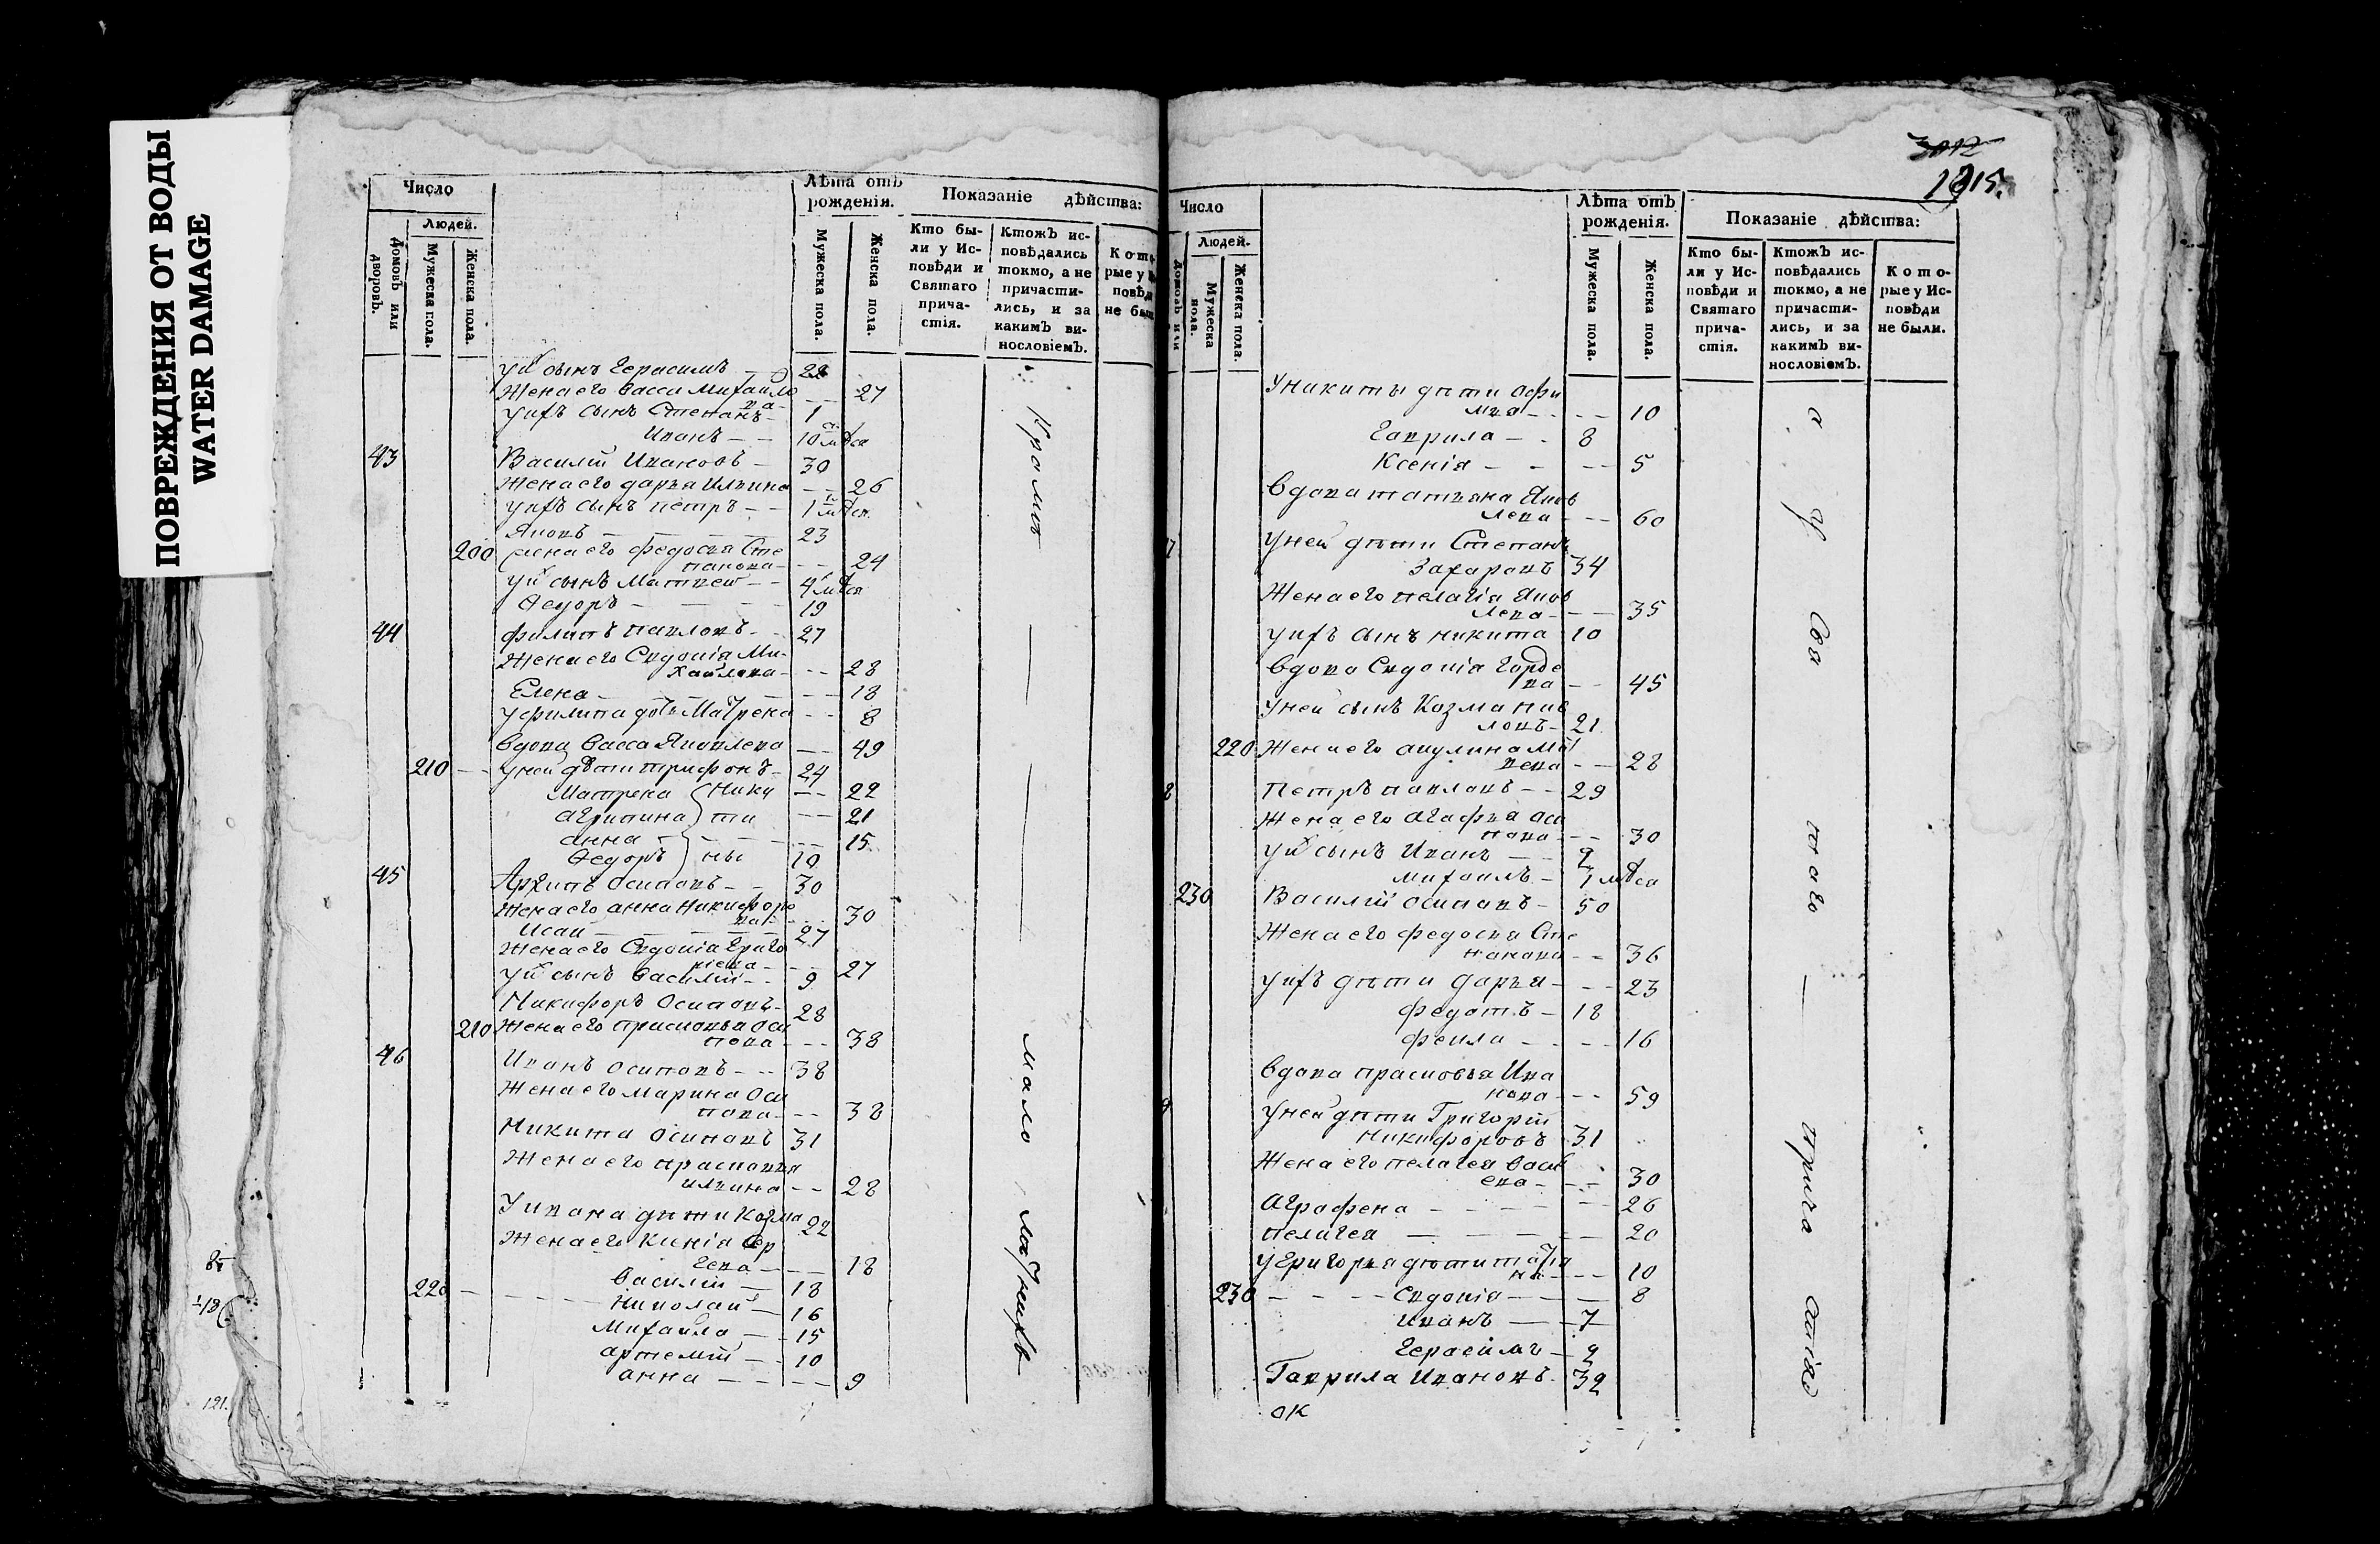 ПОВРЕЖДЕНИЯ ОТ ВОДЫ
WATER DAMAGE
Число
Людей.
Домовъ или дворовъ.
Мужеска пола.
Женска пола.
Лѣта отъ рожденія.
Мужеска пола.
Женска пола.
Показаніе дѣйства:
Кто были у Исповѣди и Святаго причастія.
Ктожъ исповѣдались токмо, а не причастились, и за какимъ винословіемъ.
Которые у Исповѣди не были.
сынъ Герасимъ 28
Жена его Васса Михайлова 27
У ихъ сынъ Степанъ 1
Иванъ 10 мѣся
43 Василій Ивановъ 30
Жена его Дарья Ильина 26
У ихъ сынъ Петръ 1 мѣся
Яковъ 23
200 Жена его Федосья Степанова 24
сынъ Матвей 4 мѣся
Ѳедоръ 19
44 Филипъ Павловъ 27
Жена его Евдокія Михайлова 28
Елена 18
У Филипа дочь Матрена 8
Вдова Васса Яковлева 49
210 У ней дѣти Трифонъ 24
Матрена Ники 22
Агрипина ти 21
Анна 15
Ѳедоръ ны 10
45 Архипъ Осиповъ 30
Жена его Анна Никифорова 30
Исаи 27
Жена его Евдокія Григорьева 27
сынъ Василій 9
Никифоръ Осиповъ 28
210 Жена его Прасковья Осипова 38
46 Иванъ Осиповъ 38
Жена его Марина Осипова 38
Никита Осиповъ 31
Жена его Прасковья
Ильина 28
У Ивана дѣти Козма 22
Жена его Ксенія Сергеева 18
Василій 18
220 Николай 16
Михайла 15
Артемій 10
Анна 9
Кромѣ
мало
лѣтнихъ
121.
1815.
Число
Людей.
Домовъ или
Мужеска пола.
Женска пола.
Лѣта отъ рожденія.
Мужеска пола.
Женска пола.
Показаніе дѣйства:
Кто были у Исповѣди и Святаго причастія.
Ктожъ исповѣдались токмо, а не причастились, и за какимъ винословіемъ.
Которые у Исповѣди не были.
У Никиты дѣти Офимья 10
Гаврила 8
Ксенія 5
Вдова Татьяна Яковлева 60
7 У ней дѣти Степанъ
Захаровъ 34
Жена его Пелагія Яковлева 35
У ихъ сынъ Никита 10
Вдова Евдокія Гордева 45
У ней сынъ Козма Павловъ 21
220 Жена его Акулина Матвева 28
8 Петръ Павловъ 29
Жена его Агафья Осипова 30
сынъ Иванъ 2
Михаилъ 1 мѣся
230 Василій Осиповъ 50
Жена его Федосья Степанова 36
У ихъ дѣти Дарья 23
Федотъ 18
Фекла 16
Вдова Прасковья Иванова 59
9 У ней дѣти Григорій
Никифоровъ 31
Жена его Пелагея Васильева 30
Аграфена 26
Пелагея 20
У Григорья дѣти Татьяна 10
230 Евдокія 8
Иванъ 7
Герасимъ 2
Гаврила Ивановъ 32
ОК
у
Свя
таго
прича
стія